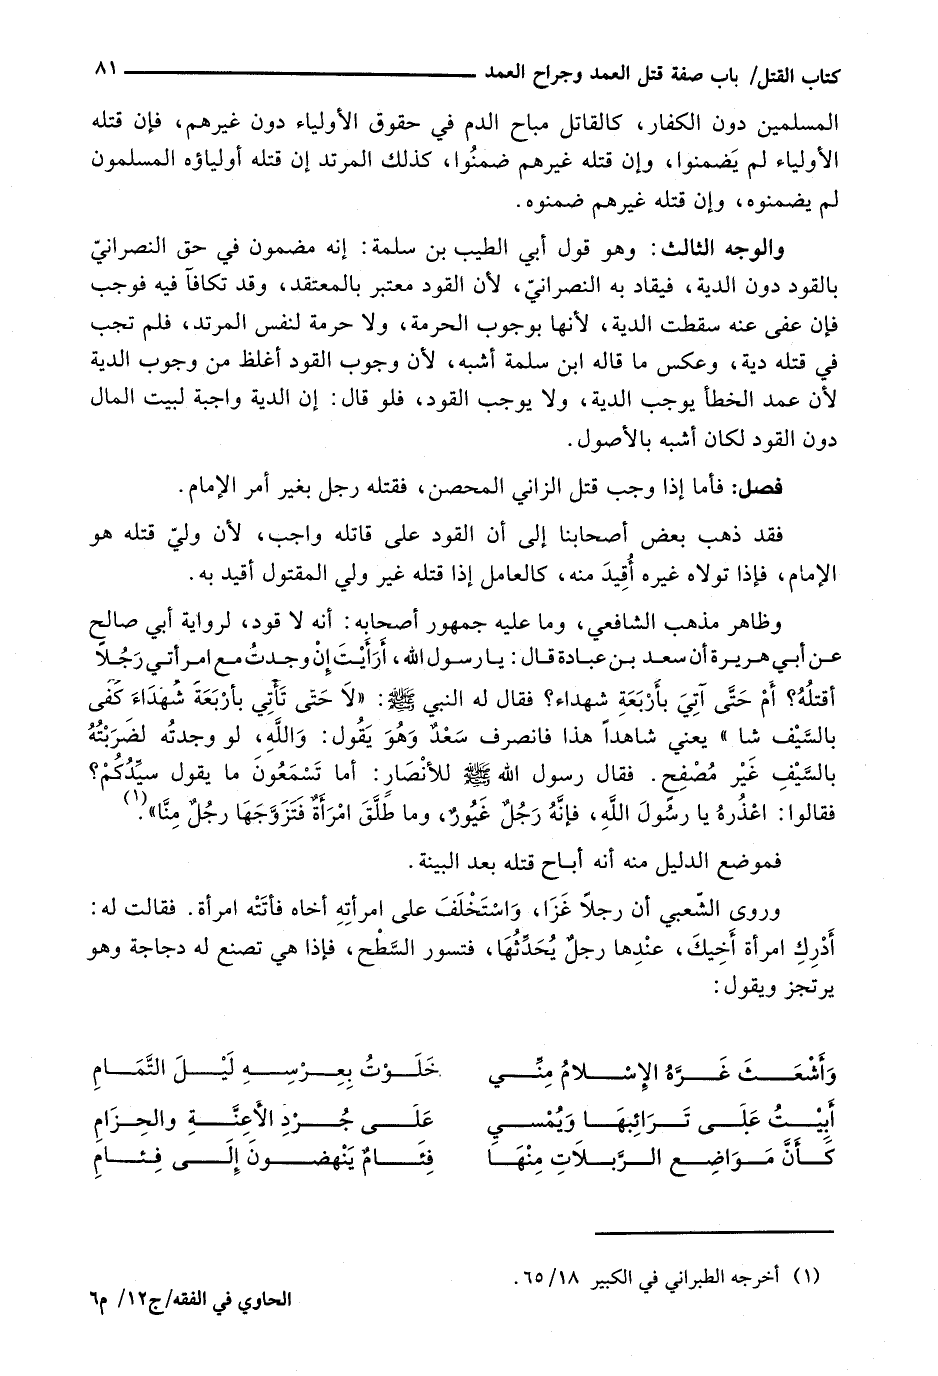 كتاب القتل/ باب صفة قتل العمد وجراح العمد ٨١
المسلمين دون الكفار، كالقاتل مباح الدم في حقوق الأولياء دون غيرهم، فإن قتله
الأولياء لم يَضمنوا، وإن قتله غيرهم ضمنُوا، كذلك المرتد إن قتله أولياؤه المسلمون
لم يضمنوه، وإن قتله غيرهم ضمنوه.
والوجه الثالث: وهو قول أبي الطيب بن سلمة: إنه مضمون في حق النصرانيّ
بالقود دون الدية، فيقاد به النصرانيّ، لأن القود معتبر بالمعتقد، وقد تكافآ فيه فوجب
فإن عفى عنه سقطت الدية، لأنها بوجوب الحرمة، ولا حرمة لنفس المرتد، فلم تجب
في قتله دية، وعكس ما قاله ابن سلمة أشبه، لأن وجوب القود أغلظ من وجوب الدية
لأن عمد الخطأ يوجب الدية، ولا يوجب القود، فلو قال: إن الدية واجبة لبيت المال
دون القود لكان أشبه بالأصول.
فصل: فأما إذا وجب قتل الزاني المحصن، فقتله رجل بغير أمر الإمام.
فقد ذهب بعض أصحابنا إلى أن القود على قاتله واجب، لأن وليّ قتله هو
الإمام، فإذا تولاه غيره أُقِيدَ منه، كالعامل إذا قتله غير ولي المقتول أقيد به.
وظاهر مذهب الشافعي، وما عليه جمهور أصحابه: أنه لا قود، لرواية أبي صالح
عن أبي هريرة أن سعد بن عبادة قال: يا رسول الله، أَرَأَيْتَ إِنْ وجدتُ مع امرأتي رَجُلاً
أقتلهُ؟ أمْ حَتَّى آتِيَ بأَرْبَعَةِ شهداء؟ فقال له النبي ﷺ: «لَا حَتَى تَأْتِي بأرْبَعَةَ شُهَدَاءَ كَفَى
بالسَّيْف شا » يعني شاهداً هذا فانصرف سَعْدٌ وَهُوَ يَقُول: وَاللَّهِ، لو وجدتهُ لضرَبْتُهُ
بالسَّيْفِ غَيْر مُصْفِح. فقال رسول الله ﷺ للأنْصَارِ: أما تَسْمَعُونَ ما يقول سيِّدُكُمْ؟
فقالوا: اعْذُرهُ يا رسُولَ اللَّهِ، فإنَّهُ رَجُلٌ غَيُورٌ، وما طلَّقَ امْرَأَةً فَتَزَوَّجَهَا رجُلٌ مِنَّا»(١).
فموضع الدليل منه أنه أباح قتله بعد البينة.
وروى الشّعبي أن رجلاً غَزَا، وَاسْتَخْلَفَ على امرأتِهِ أخاه فأتَتْه امرأة. فقالت له:
أَدْرِكِ امرأة أَخِيكَ، عنْدِها رجلٌ يُحَدِّثُهَا، فتسور السَّطْح، فإذا هي تصنع له دجاجة وهو
يرتجز ويقول:
وَأَشْعَثَ غَرَّهُ الإِسْلامُ مِنِّي خَلَوْتُ بِعِرْسِهِ لَيْلَ التَّمَامِ
أَبِيْتُ عَلَى تَرَائِبهَا وَيُمْسي عَلَى جُرْدِ الأَعِنَّةِ والحِزَامِ
كَأنَّ مَوَاضِع الرَّبلاَتِ مِنْهَا فِئَامٌ يَنْهضُونَ إلَى فِئَامِ
(١) أخرجه الطبراني في الكبير ٦٥/١٨.
الحاوي في الفقه/ج١٢/ م٦